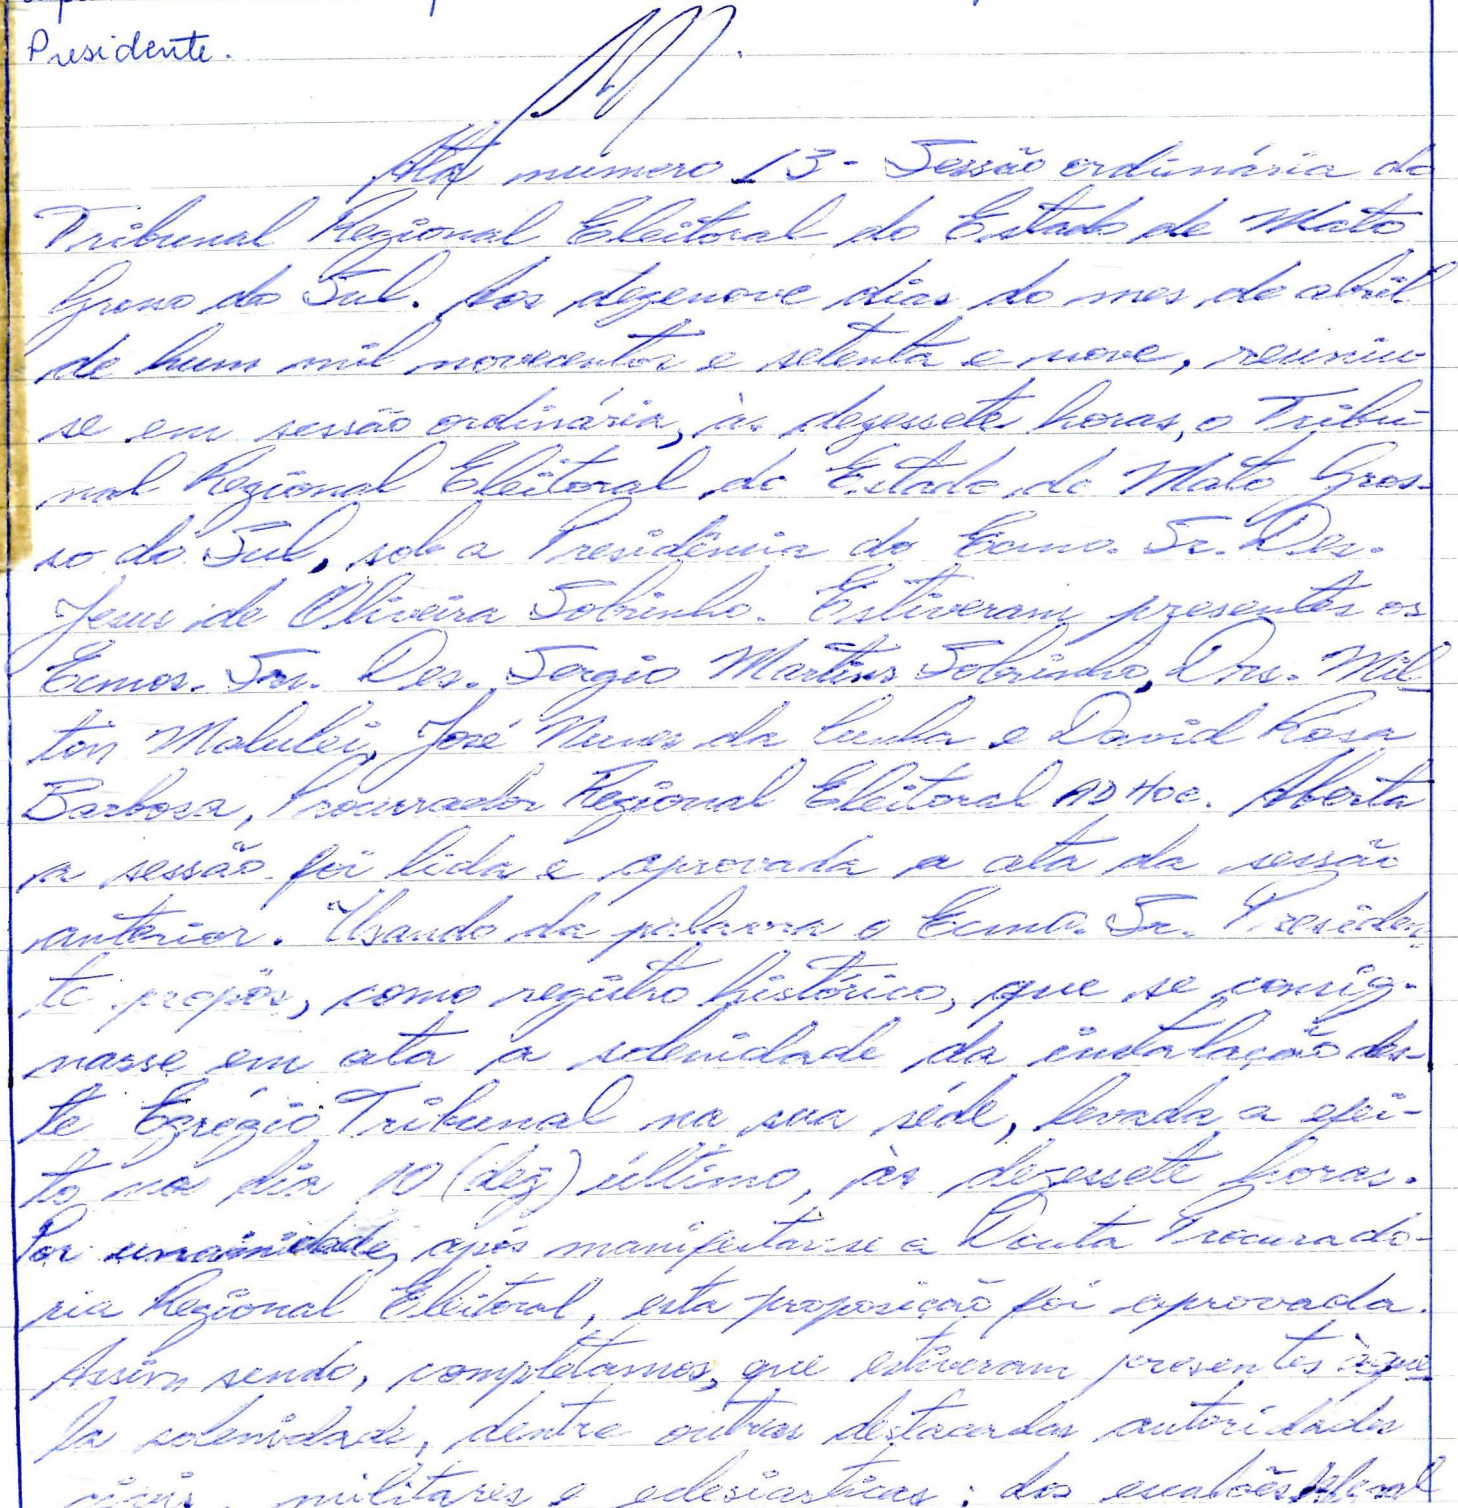 Presidente.
Ata número 13 - Sessão ordinária do
Tribunal Regional Eleitoral do Estado de Mato
Grosso do Sul. Aos dezenove dias do mes de abril
de hum mil novecentos e setenta e nove, reuniu-
se em sessão ordinária, às dezessete horas, o Tribu-
nal Regional Eleitoral do Estado de Mato Gros-
so do Sul, sob a Presidência do Exmo. Sr. Des.
Jesus de Oliveira Sobrinho. Estiveram presentes os
Exmos. Srs. Des. Sergio Martins Sobrinho, Drs. Mil-
ton Malulei, José Nunes da Cunha e David Rosa
Barbosa, Procurador Regional Eleitoral AD HOC. Aberta
a sessão foi lida e aprovada a ata da sessão
anterior. Usando da palavra o Exmo. Sr. Presiden-
te propôs, como registro histórico, que se consig-
nasse em ata a solenidade da instalação des-
te Egrégio Tribunal na sua séde, levada a efei-
to no dia 10 (dez) último, às dezessete horas.
Por unanimidade, após manifestar-se a Douta Procurado-
ria Regional Eleitoral, esta proposição foi aprovada.
Assim sendo, completamos, que estiveram presentes àque-
la solenidade, dentre outras destacadas autoridades
civis, militares e eclesiasticas: dos escalões federal